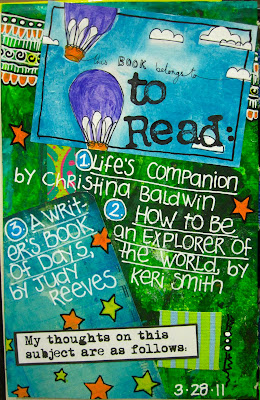 this BOOK belongs to
to
Read:
1 Life's Companion
by Christina Baldwin
2. How to Be
an EXPLORER of
the World, by
Keri Smith
3 A Writ-
er's Book
of Days,
by Judy
Reeves
My thoughts on this
subject are as follows:
3.28.11